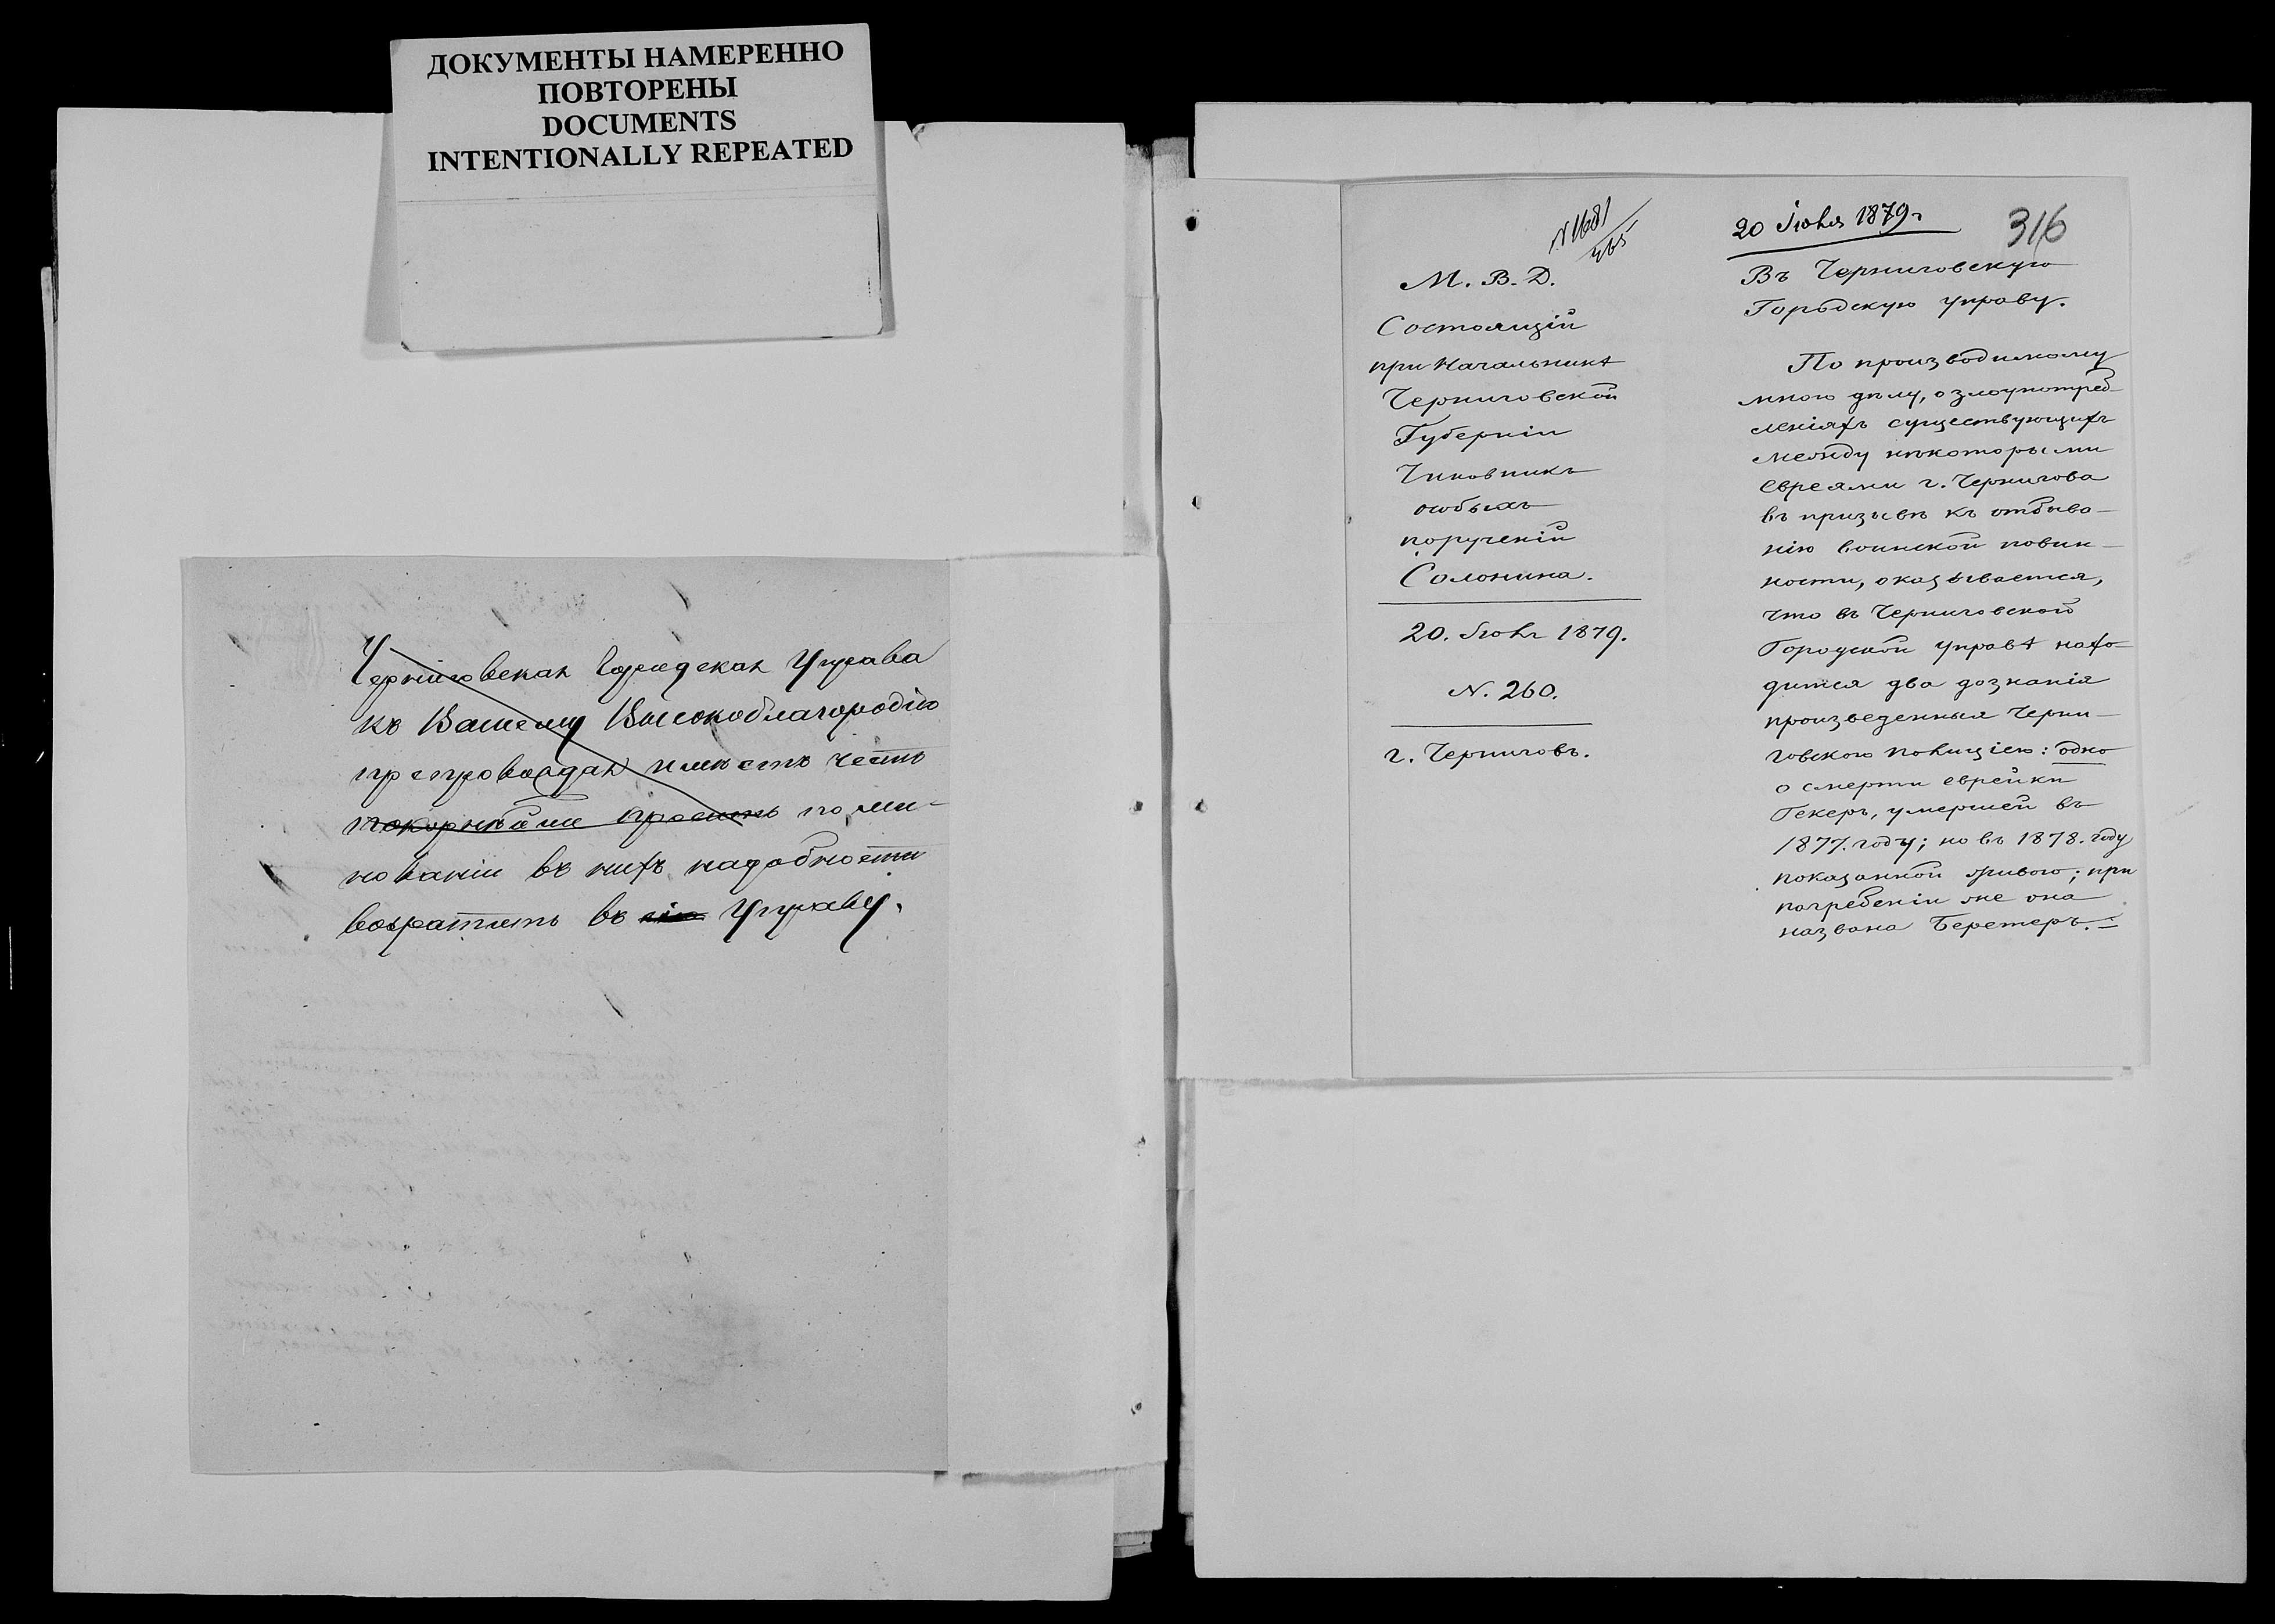 ДОКУМЕНТЫ НАМЕРЕННО
ПОВТОРЕНЫ
DOCUMENTS
INTENTIONALLY REPEATED
Черниговская Городская Управа
къ Вашему Высокоблагородію
препровождая имѣетъ честь
покорнѣйше просить по ми-
нованіи въ нихъ надобности
возратить въ Управу.
N 1681
465
М. В. Д.
Состоящій
при Начальникѣ
Черниговской
Губерніи
Чиновникъ
особыхъ
порученій
Солонина.
20. Іюля 1879.
N. 260.
г. Черниговъ.
20 Іюля 1879 г
316
Въ Черниговскую
Городскую управу.
По производимому
мною дѣлу, о злоупотреб-
леніяхъ существующихъ
между нѣкоторыми
евреями г. Чернигова
въ призывѣ къ отбыва-
нію воинской повин-
ности, оказывается,
что въ Черниговской
Городской управѣ нахо-
дится два дознанія
произведенныя Черни-
говскою полиціею: одно
о смерти еврейки
Гекеръ, умершей въ
1877. году; но въ 1878. году
показанной живою; при
погребеніи же она
названа Беретеръ. =